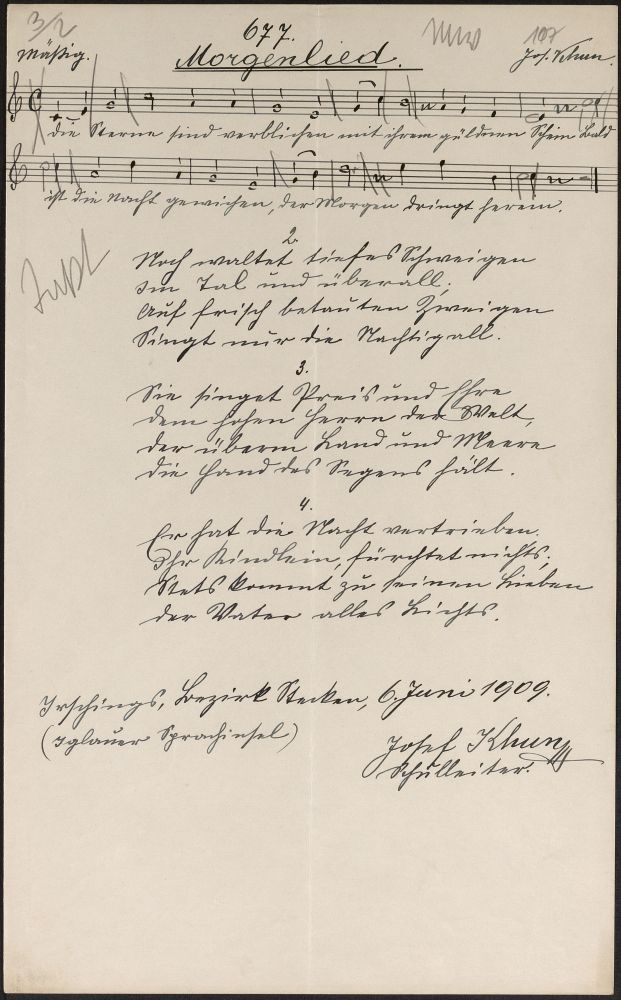 3/2
677.
107
Mäßig.
Morgenlied.
Jos. Khun
Die Sterne sind verblichen mit ihrem güldnen Schein Bald
ist die Nacht gewichen, der Morgen dringt herein.
2.
Noch waltet tiefes Schweigen
Im Tal und überall;
Auf frisch betauten Zweigen
Singt nur die Nachtigall.
3.
Sie singet Preis und Ehre
dem hohen Herrn der Welt,
der überm Land und Meere
die Hand des Segens hält.
4.
Er hat die Nacht vertrieben.
Ihr Kindlein, fürchtet nichts;
Stets kommt zu seinen Lieben
der Vater alles Lichts.
Irschings, Bezirk Stecken, 6. Juni 1909.
(Iglauer Sprachinsel)
Josef Khun
Schulleiter.